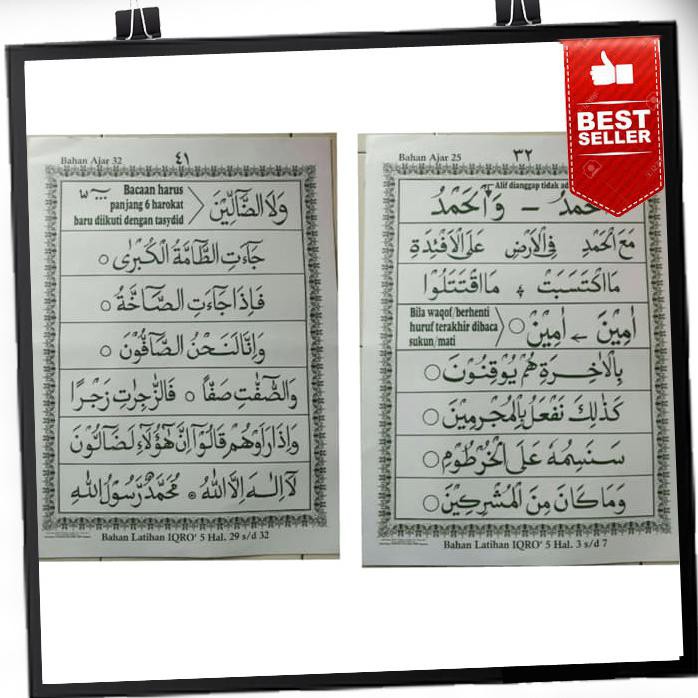 BEST
SELLER
Bahan Ajar 32
٤١
وَلَا الضَّآلِّيْنَ
Bacaan harus
panjang 6 harokat
baru diikuti dengan tasydid
جَآءَتِ الطَّآمَّةُ الْكُبْرٰى ○
فَاِذَا جَآءَتِ الصَّآخَّةُ ○
وَاِنَّا لَنَحْنُ الصَّآفُّوْنَ ○
وَالصّٰٓفّٰتِ صَفًّا ○ فَالزّٰجِرٰتِ زَجْرًا
وَاِذَا رَاَوْهُمْ قَالُوْٓا اِنَّ هٰٓؤُلَاۤءِ لَضَآلُّوْنَ
لَآ اِلٰهَ اِلَّا اللهُ ۞ مُحَمَّدٌ رَّسُوْلُ اللهِ
Bahan Latihan IQRO' 5 Hal. 29 s/d 32
Bahan Ajar 25
٣٢
Alif dianggap tidak
حَمْدُ – وَالْحَمْدُ
مَعَ الْحَمْدِ فِى الْاَرْضِ عَلَى الْاَفْئِدَةِ
مَا اكْتَسَبَتْ ، مَا اقْتَتَلُوْا
اٰمِيْنَ ← اٰمِيْنَ ○
Bila waqof/berhenti
huruf terakhir dibaca
sukun/mati
بِالْاٰخِرَةِ هُمْ يُوْقِنُوْنَ ○
كَذٰلِكَ نَفْعَلُ بِالْمُجْرِمِيْنَ ○
سَنَسِمُهٗ عَلَى الْخُرْطُوْمِ ○
وَمَا كَانَ مِنَ الْمُشْرِكِيْنَ ○
Bahan Latihan IQRO' 5 Hal. 3 s/d 7